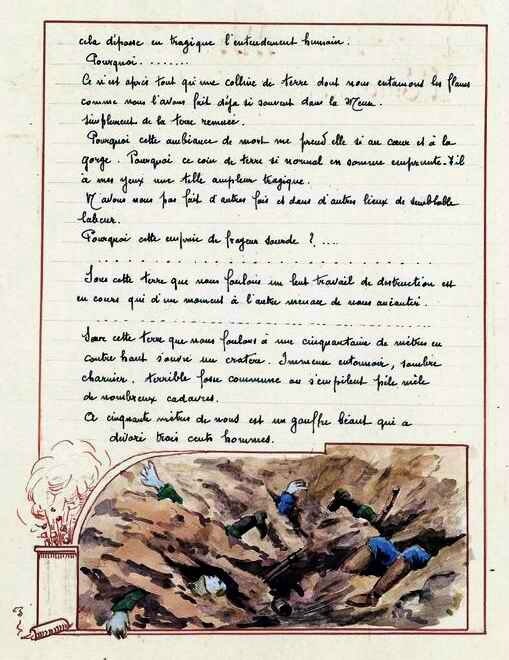 cela dépasse en tragique l'entendement humain.
Pourquoi ........
Ce n'est après tout qu'une colline de terre dont nous entamons les flancs
comme nous l'avons fait déjà si souvent dans la Meuse.
simplement de la terre remuée.
Pourquoi cette ambiance de mort me prend elle si au cœur et à la
gorge. Pourquoi ce coin de terre si normal en somme emprunte-t-il
à mes yeux une telle ampleur tragique.
N'avons nous pas fait d'autres fois et dans d'autres lieux de semblable
labeur.
Pourquoi cette emprise de frayeur sourde ? ....
Sous cette terre que nous foulons un lent travail de destruction est
en cours qui d'un moment à l'autre menace de nous anéantir.
Sous cette terre que nous foulons à une cinquantaine de mètres en
contre haut s'ouvre un cratère. Immense entonnoir, sombre
charnier. terrible fosse commune ou s'empilent pile mêle
de nombreux cadavres.
A cinquante mètres de nous est un gouffre béant qui a
dévoré trois cents hommes.